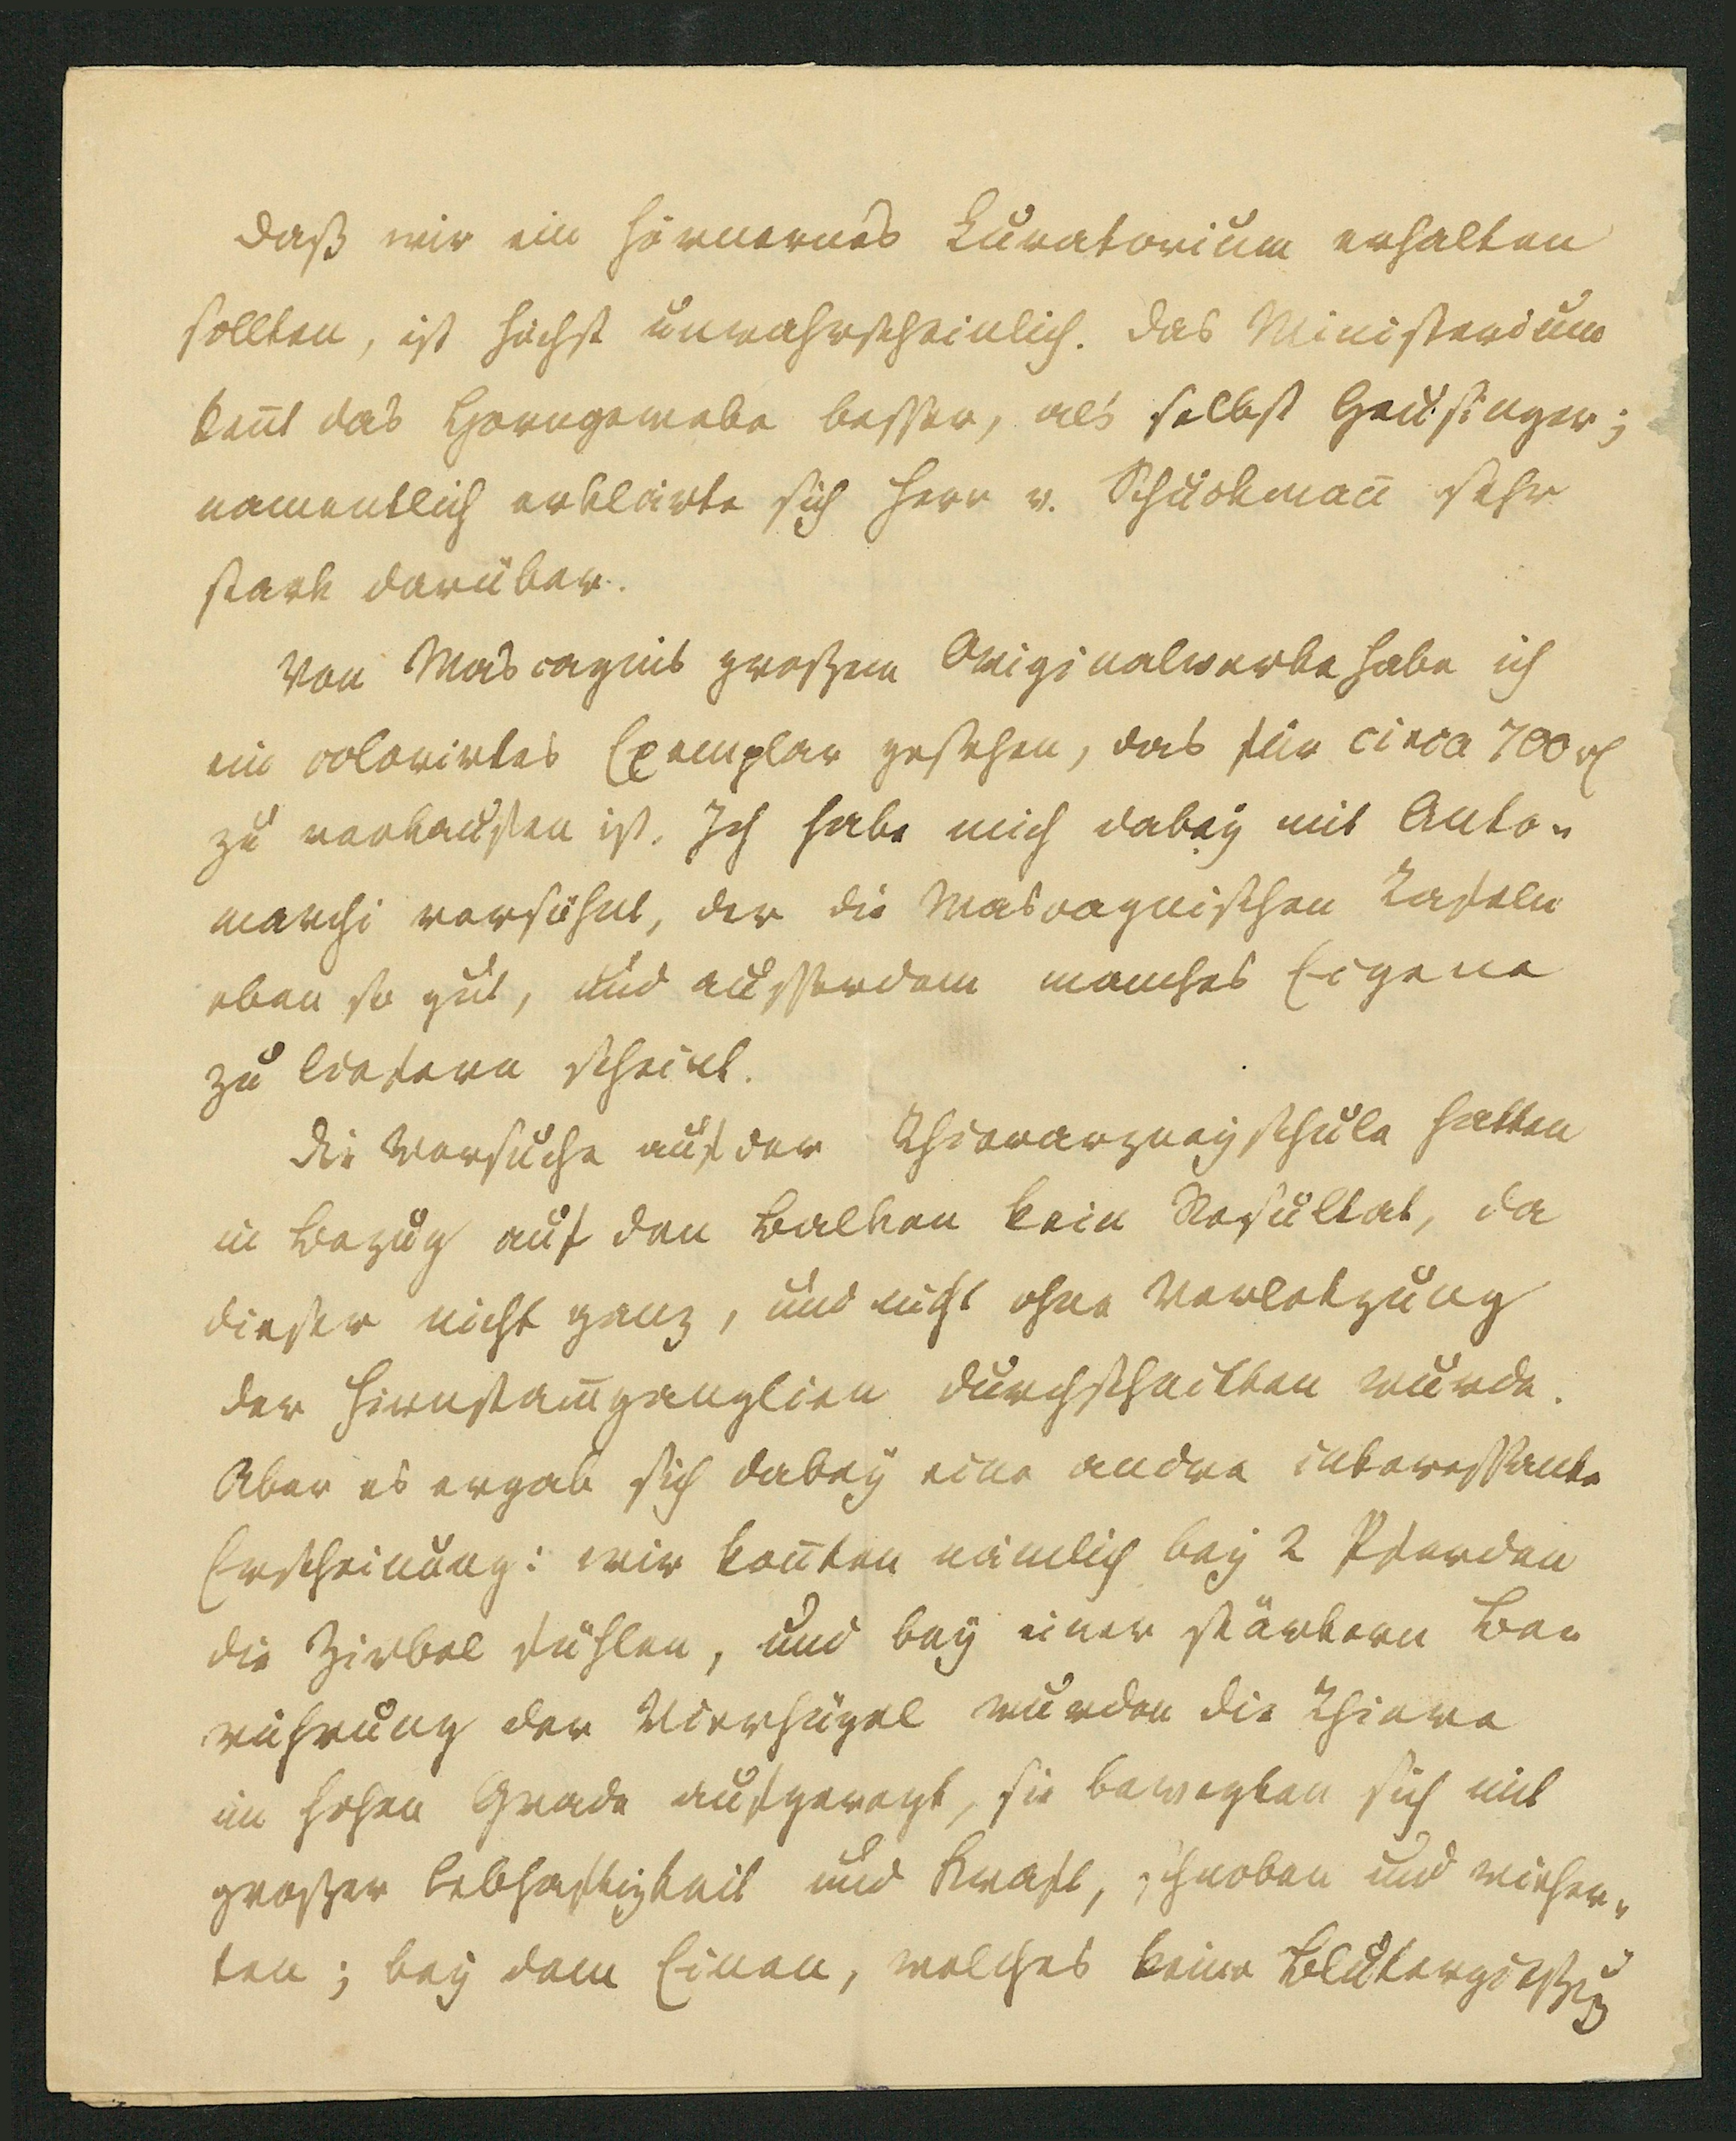 Daß wir ein hörnernes Kuratorium erhalten
sollten, ist höchst unwahrscheinlich. Das Ministerium
keñt das Horngewebe besser, als selbst Heusinger;
namentlich erklärte sich Herr v. Schuckmañ sehr
stark darüber.
Von Mascagnis großem Originalwerke habe ich
ein colorirtes Exemplar gesehen, das für circa 700 rl
zu verkaufen ist. Ich habe mich dabey mit Anto-
marchi versöhnt, der die Mascagnischen Tafeln
eben so gut, und ausserdem manches Eigene
zu liefern scheint.
Die Versuche auf der Thierarzneyschule hatten
in Bezug auf den Balken kein Resultat, da
dieser nicht ganz, und nicht ohne Verletzung
der Hirnstam̄ganglien durchschnitten wurde.
Aber es ergab sich dabey eine andre interessante
Erscheinung: wir koñten nämlich bey 2 Pferden
die Zirbel fühlen, und bey einer stärkern Be-
rührung der Vierhügel wurden die Thiere
im hohen Grade aufgeregt, sie bewegten sich mit
großer Lebhaftigkeit und Kraft, schnoben und wieher-
ten; bey dem Einen, welches keine Blutergießung